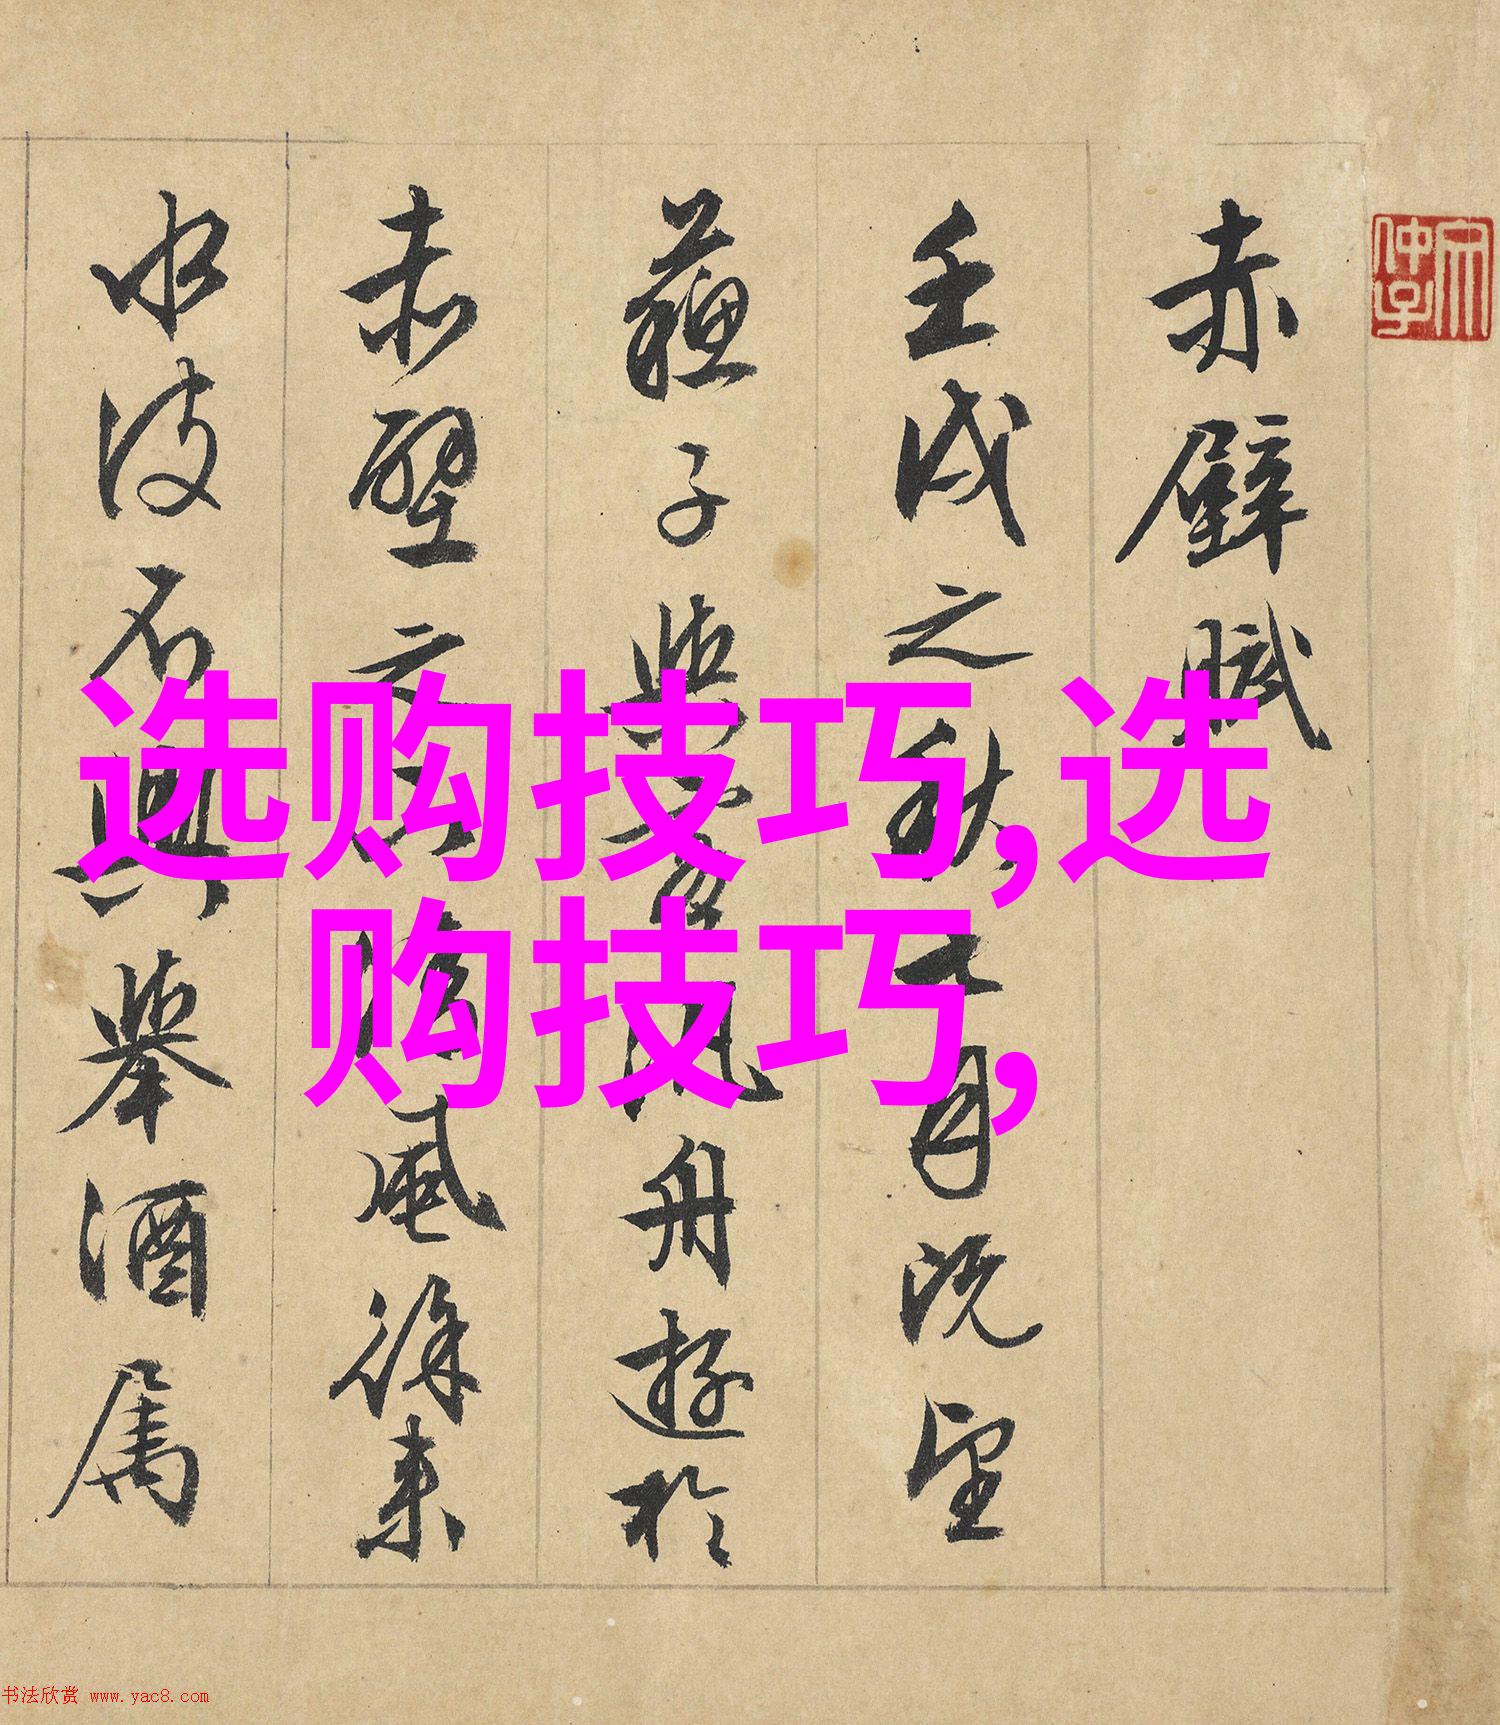 赤壁賦
壬戌之秋七月既望
蘇子與客汎舟遊於
赤壁之下清風徐來
水波不興舉酒屬
选购技巧,选
购技巧,
书法欣赏 www.yac8.com